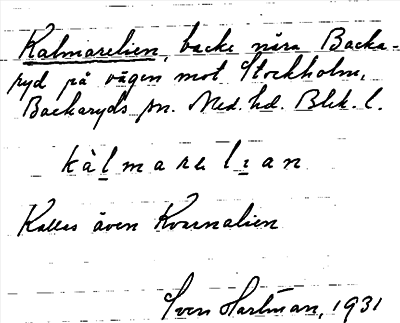 Kalmarelien, backe nära Backa-
ryd på vägen mot Stockholm,
Backaryds sn. Med. hd. Blek. l.
kàlmarɛlɪan
Kallas även Kvarnalien
Sven Hartman, 1931